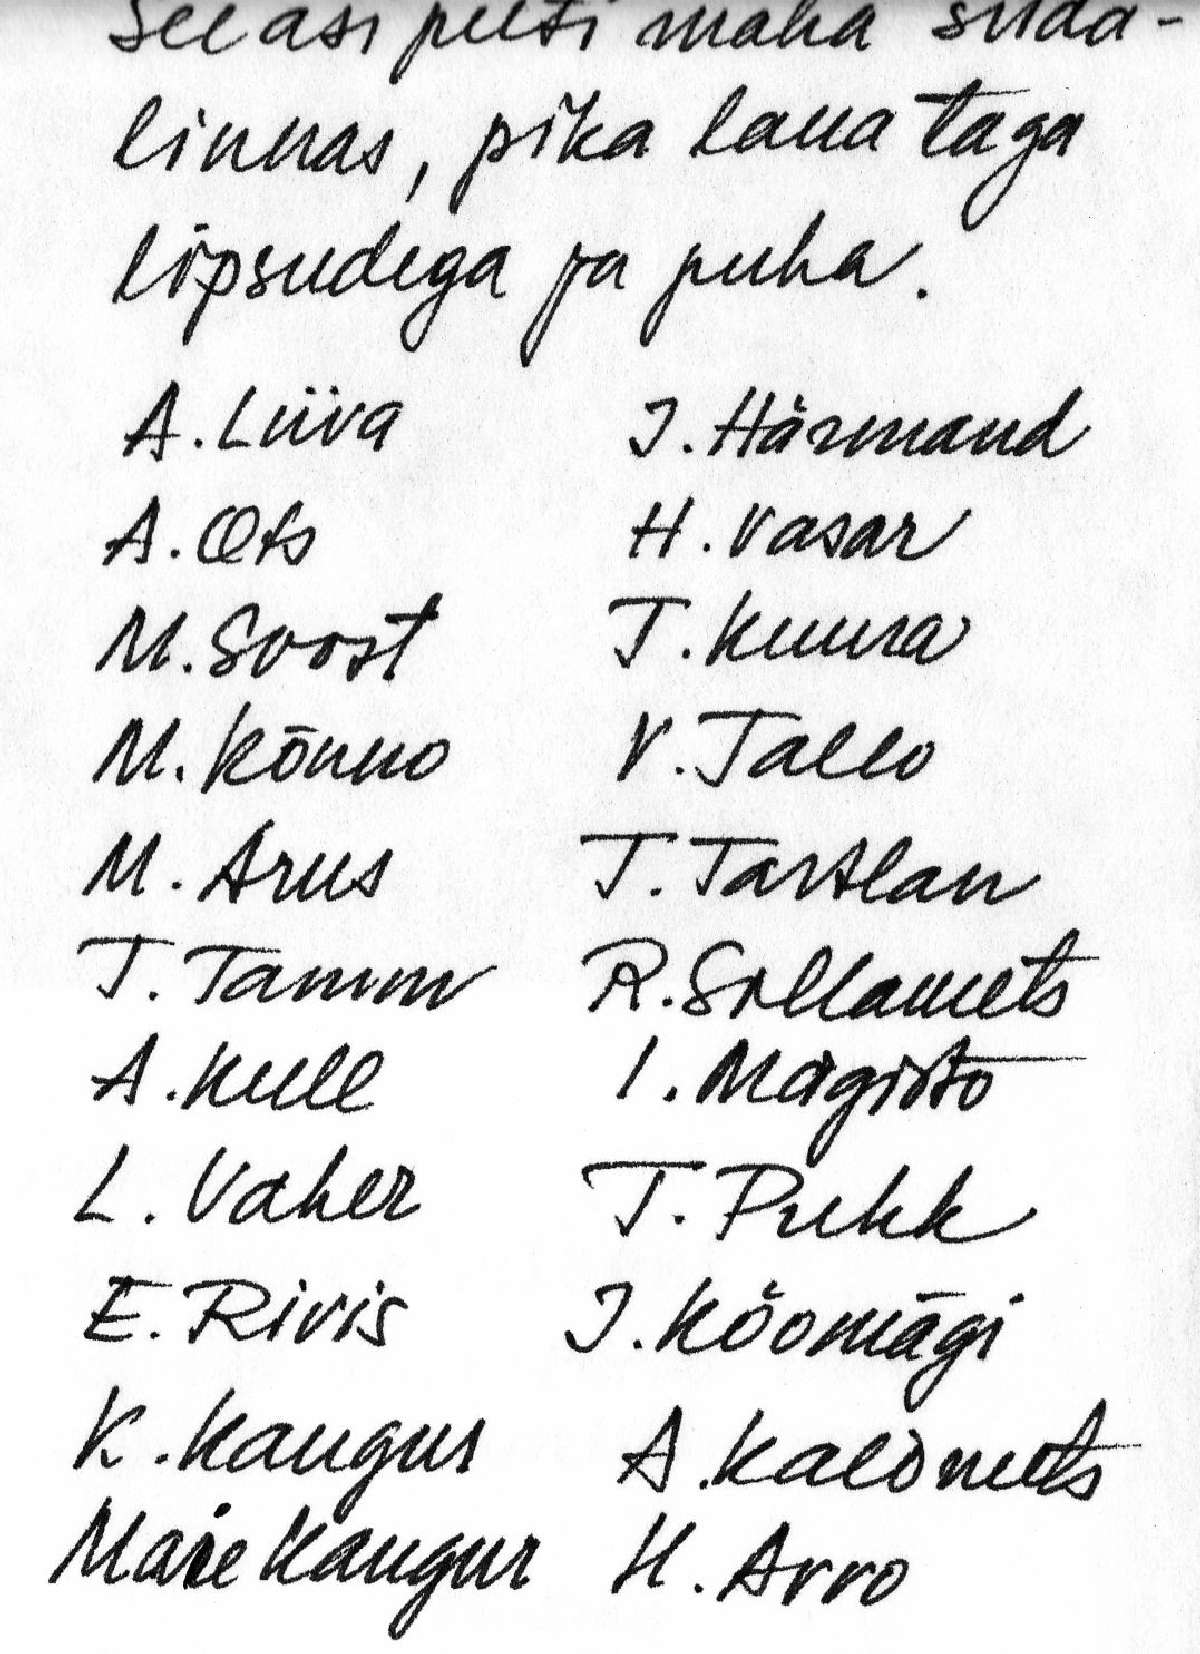 See asi peeti maha süda-
linnas, pika laua taga
lipsudega ja puha.
A. Liiva
A. Ots
M. Soost
M. Kõnno
M. Arus
T. Tamm
A. Kull
L. Vaher
E. Rivis
K. Kangur
Maie Kangur
J. Härmand
H. Vasar
T. Kuura
V. Tallo
T. Tartlan
R. Sollamets
I. Mägisto
T. Pukk
J. Kõomägi
A. Kaldmets
H. Arro